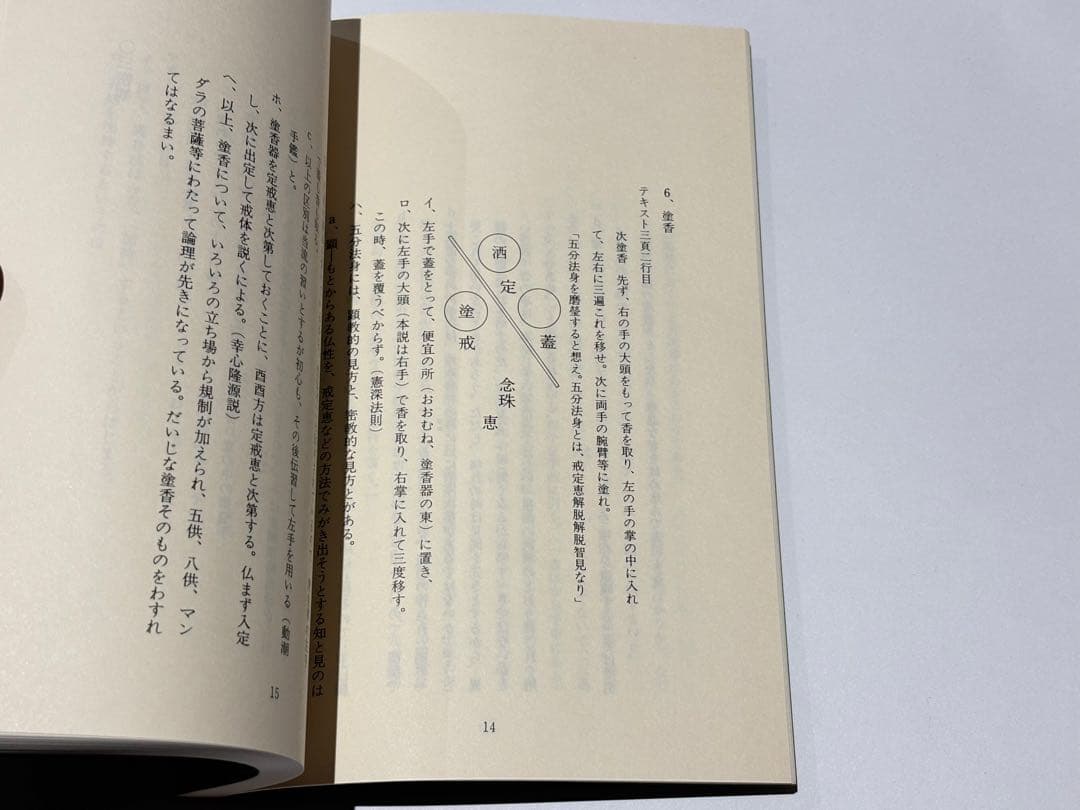 6、塗香
テキスト三頁二行目
次塗香 先ず、右の手の大頭をもって香を取り、左の手の掌の中に入れ
て、左右に三遍これを移せ。次に両手の腕臂等に塗れ。
「五分法身を磨瑩すると想え。五分法身とは、戒定恵解脱解脱智見なり」
蓋
洒
定
塗
戒
念珠
恵
イ、左手で蓋をとって、便宜の所（おおむね、塗香器の東）に置き、
ロ、次に左手の大頭（本説は右手）で香を取り、右掌に入れて三度移す。
この時、蓋を覆うべからず。（憲深法則）
ハ、五分法身には、顕教的の見方と、密教的な見方とがある。
a、顕―もとからある仏性を、戒定恵などの方法でみがき出そうとする知と見のは
14
c、以上の区別は当流の習いとするが初心も、その後伝習して左手を用いる（動潮
手鑑）と。
ホ、塗香器を定戒恵と次第しておくことに、酉酉方は定戒恵と次第する。仏まず入定
し、次に出定して戒体を説くによる。（幸心隆源説）
ヘ、以上、塗香について、いろいろの立ち場から規制が加えられ、五供、八供、マン
ダラの菩薩等にわたって論理が先きになっている。だいじな塗香そのものをわすれ
てはなるまい。
15